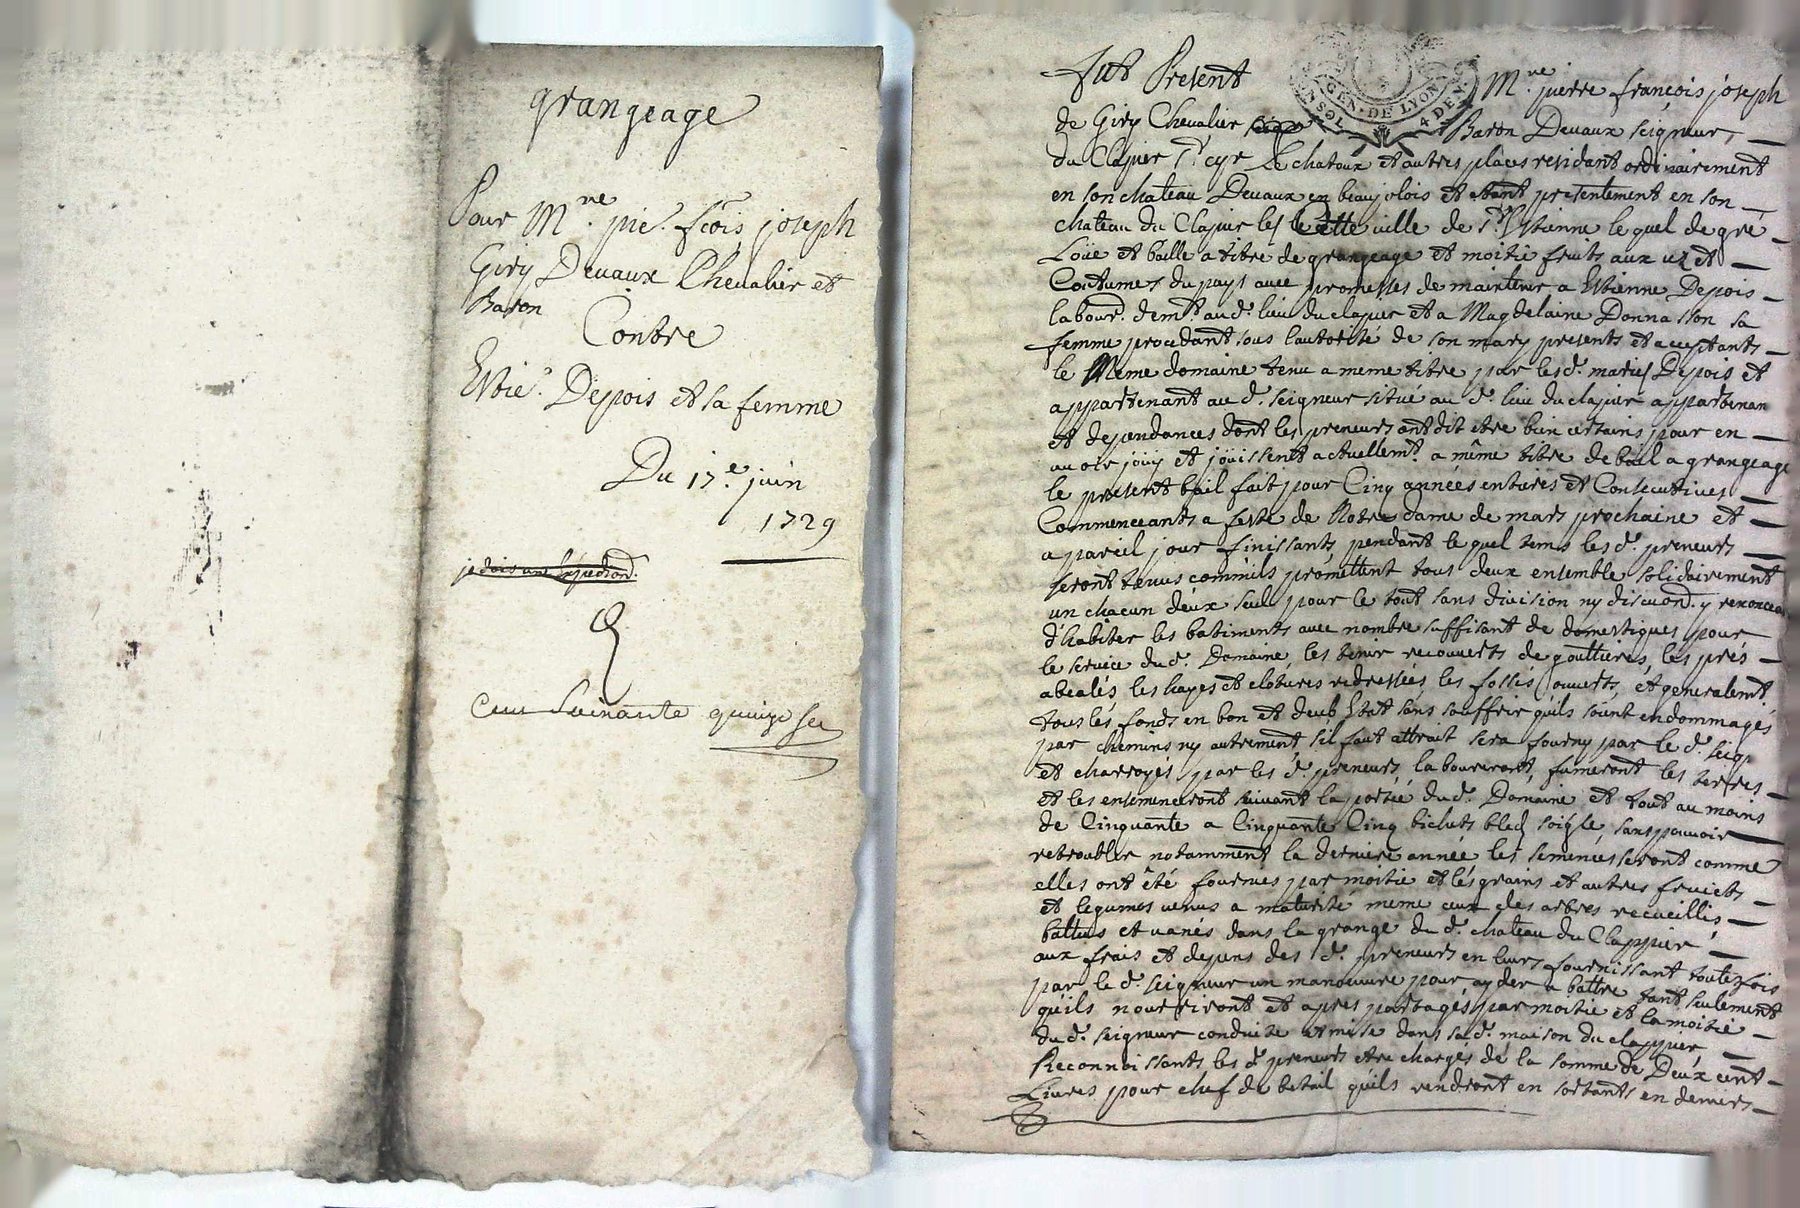 grangeage
Pour Mre. pie. fcois joseph
Giry Devaux Chevalier et
Baron
Contre
Estie. Depois et sa femme
Du 17e. juin
1729
je dois une Expedion.
Cent Soixante quinze
Fut Present Mre. pierre françois joseph
GEN. DE LYON
4 DEN.
de Giry Chevalier Baron Devaux seigneur
du Clapier St. cyr Le chatoux et autres places residant ordinairement
en son chateau Devaux en beaujolois et etant presentement en son
chateau du Clapier les cette ville de St. Estienne le quel de gré
Loüe et baille a titre de grangeage et moitié fruits aux uz et
Coutumes du pays avec promesses de maintenir a Estienne Depois
labour. demt. aud. lieu du clapier et a Magdelaine Donnasson sa
femme procedant sous l'autorité de son mary presents et acceptants
le Meme domaine tenu a meme titre par les d. mariés Depois et
appartenant au d. seigneur situé au d. lieu du clapier appartenan
et dependances dont les preneurs ont dit etre bien certains pour en
avoir joüy et joüissent actuellemt. a même titre de bail a grangeage
le present bail fait pour Cinq années entieres et Consecutives
Commenceants a feste de Notre dame de mars prochaine et
a pareil jour finissants, pendant le quel tems les d. preneurs
seront tenus comm'ils promettent tous deux ensemble solidairement
un chacun d'eux seul pour le tout sans division ny discuon. y renonceant
d'habiter les batiments avec nombre suffisant de domestiques pour
le service du d. Domaine, les tenir recouverts de gouttieres, les prés
abealés les hayes et clotures redressées les fossés ouverts, et generalemt.
tous les fonds en bon et deub Estat sans souffrir qu'ils soient endommagés
par chemins ny autrement, sil faut attrait sera fourny par le d. seigr
et charroyés par les d. preneurs, laboureront, fumeront les terres
et les ensemenceront suivant la portée du d. Domaine et tout au moins
de Cinquante a Cinquante Cinq bichets bled soigle, sans pouvoir
retroubler notamment la derniere année les semences seront comme
elles ont êté fournies par moitié et les grains et autres fruicts
et legumes venus a maturité meme ceux des arbres recueillis
battus et vanés dans la grange du d. chateau du Clappier
aux frais et depens des d. preneurs en leurs fournissant toutefois
par le d. seigneur un manoeuvre pour ayder a battre tant seulement
qu'ils nourriront et apres partagés par moitié et la moitié
du d. seigneur conduite et mise dans sa d. maison du clappier
Reconnoissants les d. preneurs etre chargés de la somme de Deux cent
Livres pour chef de betail qu'ils rendront en sortants en deniers